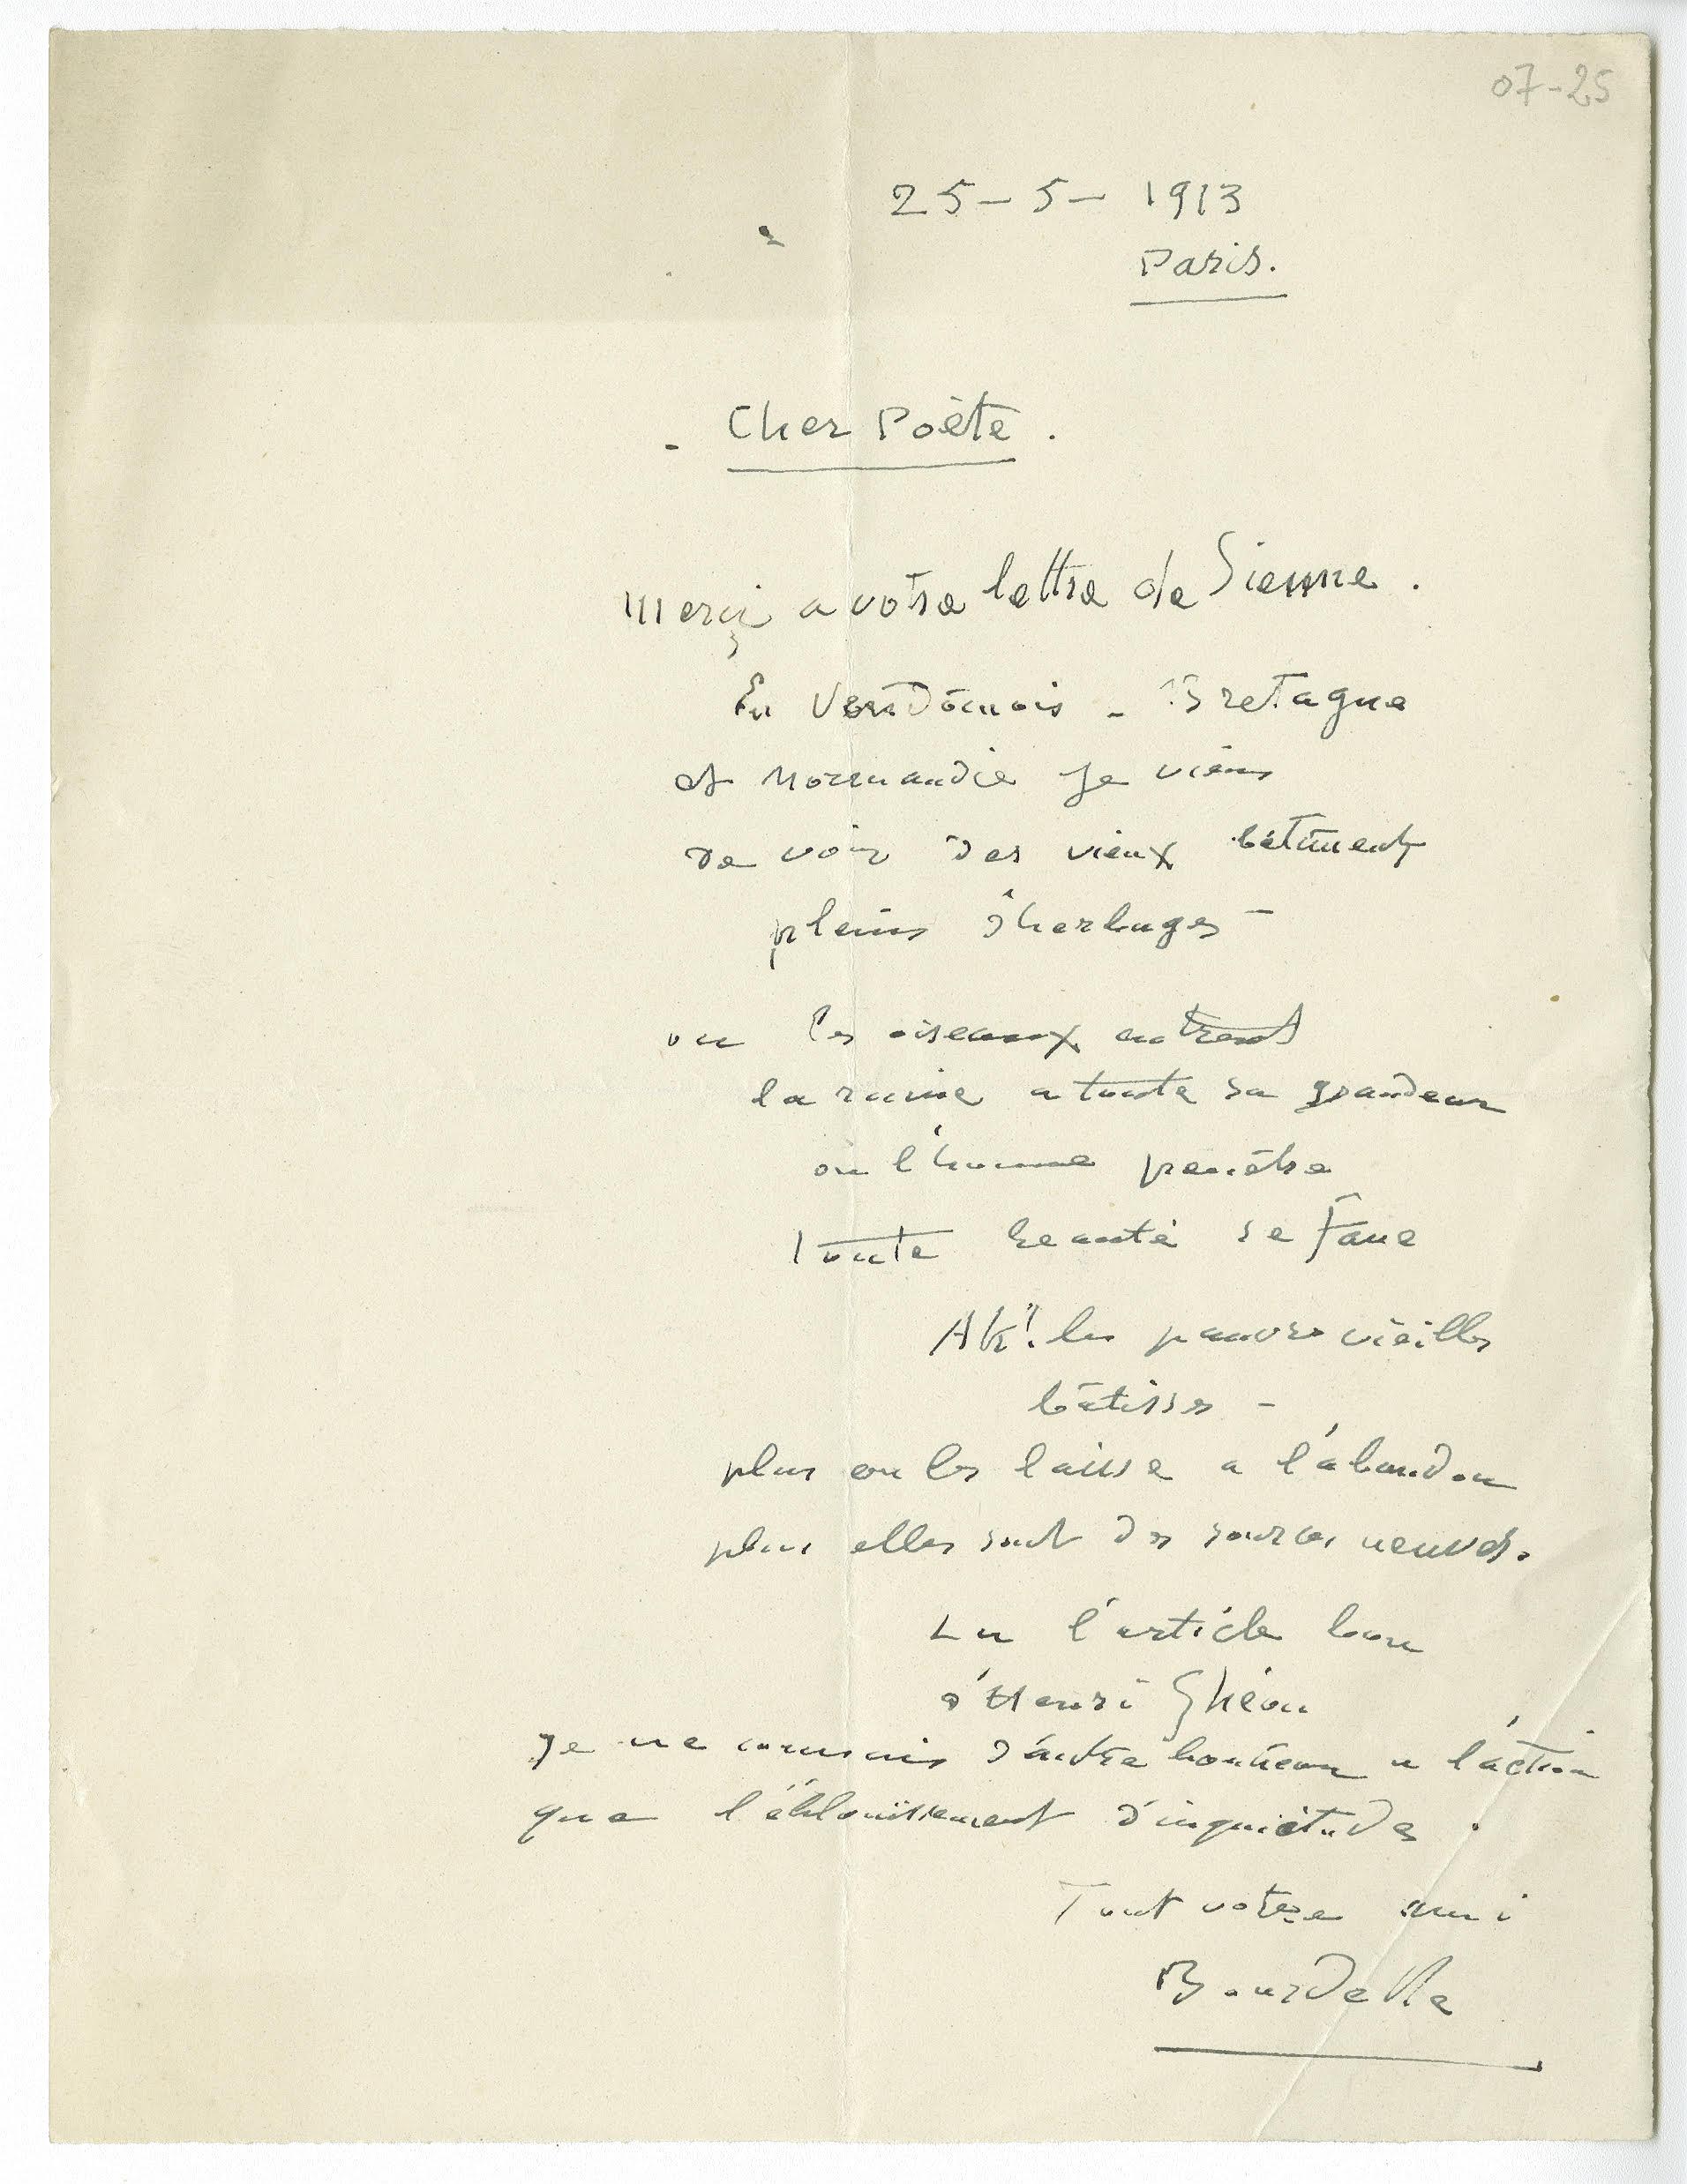 07-25
25-5-1913
Paris.
- Cher Poète.
Merci a votre lettre de Sienne.
En Vendômois - Bretagne
et Normandie je viens
de voir des vieux bâtiments
pleins d'herbages -
ou les oiseaux entrent
la ruine a toute sa grandeur
où l'homme penètre
toute beauté se fane
Ah! les pauvres vieilles
bâtisses -
plus on les laisse a l'abandon
plus elles sont des sources neuves.
Lu l'article bon
d'Henri Ghéon
Je ne connais d'autre a l'action
que l'éblouissement d'inquiétudes.
Tout votre ami
Bourdelle